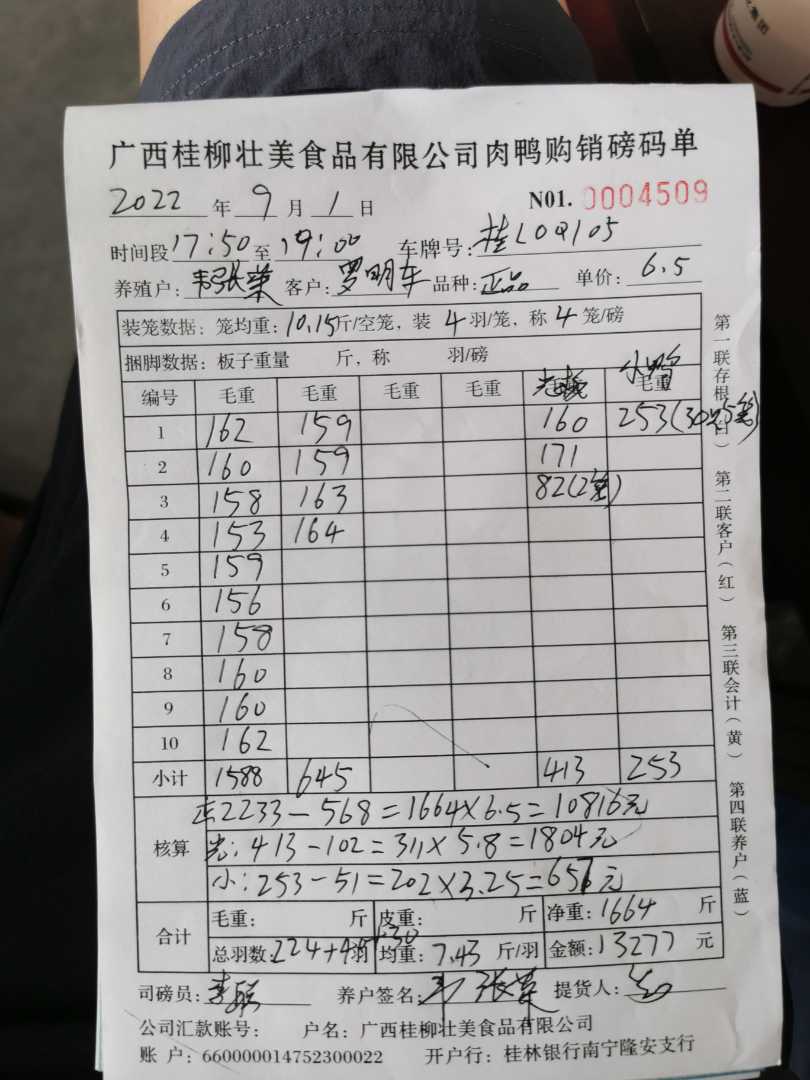 集团
广西桂柳壮美食品有限公司肉鸭购销磅码单
2022年9月1日 N01.0004509
时间段17:50至19:00 车牌号:桂L0Q105
养殖户:韦张荣 客户:罗明车 品种:正品 单价:6.5
装笼数据:笼均重:10.15斤/空笼,装4羽/笼,称4笼/磅
捆脚数据:板子重量 斤,称 羽/磅
编号 毛重 毛重 毛重 毛重 小鸭 毛重
1 162 159 160 253(30只5笼)
2 160 159 171
3 158 163 82(2笼)
4 153 164
5 159
6 156
7 158
8 160
9 160
10 162
小计 1588 645 413 253
核算
正2233-568=1664×6.5=10816元
光:413-102=311×5.8=1804元
小:253-51=202×3.25=657元
合计
毛重: 斤 皮重: 斤 净重:1664斤
总羽数:224+45+30羽 均重:7.43斤/羽 金额:13277元
司磅员: 养户签名:韦张荣 提货人:
公司汇款账号: 户名:广西桂柳壮美食品有限公司
账 户:660000014752300022 开户行:桂林银行南宁隆安支行
第一联存根(白)
第二联客户(红)
第三联会计(黄)
第四联养户(蓝)